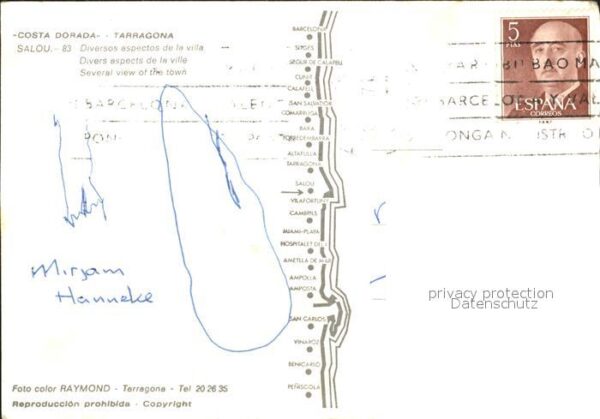 -COSTA DORADA- - TARRAGONA
SALOU.- 83 Diversos aspectos de la villa
Divers aspects de la ville
Several view of the town
BARCELONA
SITGES
SEGUR DE CALAFELL
CUNIT
CALAFELL
SAN SALVADOR
COMARRUGA
BARA
TORREDEMBARRA
ALTAFULLA
TARRAGONA
SALOU
VILAFORTUNY
CAMBRILS
MIAMI-PLAYA
HOSPITALET DE I.
AMETLLA DE MAR
AMPOLLA
AMPOSTA
SAN CARLOS
VINAROZ
BENICARLO
PEÑISCOLA
5
PTAS
ESPAÑA
CORREOS
BILBAO MA
BARCELONA
BARCELO
Mirjam
Hanneke
privacy protection
Datenschutz
Foto color RAYMOND - Tarragona - Tel 20 26 35
Reproducción prohibida - Copyright